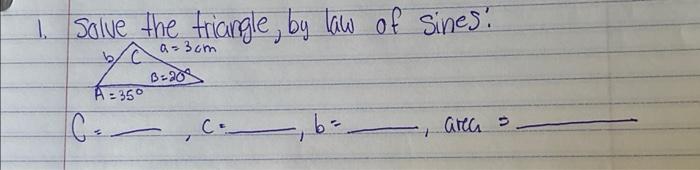 1. Solve the triangle, by law of sines:
b C a = 3cm
B = 20°
A = 35°
C = ___, c = ___, b = ___, area = ___